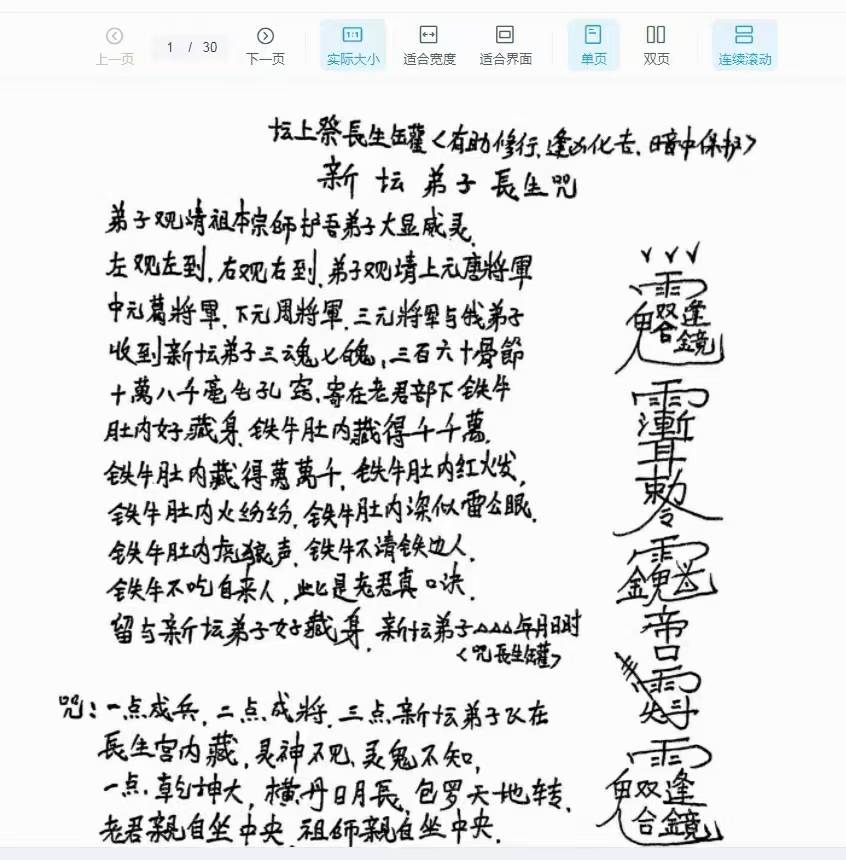 上一页
1 / 30
下一页
1:1
实际大小
适合宽度
适合界面
单页
双页
连续滚动
坛上祭長生罐<有助修行.逢凶化吉.暗中保护>
新坛弟子長生咒
弟子观请祖本宗师护吾弟子大显威灵.
左观左到.右观右到.弟子观请上元唐將軍
中元葛將軍.下元周將軍.三元將军与我弟子
收到新坛弟子三魂七魄,三百六十骨節
十萬八千毫毛孔窍.寄在老君部下铁牛
肚内好藏身.铁牛肚内藏得千千萬.
铁牛肚内藏得萬萬千.铁牛肚内红火发,
铁牛肚内火纷纷.铁牛肚内深似雷公眼.
铁牛肚内虎狼声.铁牛不清铁边人.
铁牛不吃自来人.此是老君真口决.
留与新坛弟子好藏身.新坛弟子△△△年月日时
<咒長生罐>
咒:一点成兵.二点成將.三点新坛弟子飞在
長生宫内藏.灵神不见.灵鬼不知,
一点.乾坤大,横丹日月長.包罗天地转.
老君親自坐中央.祖师親自坐中央.
雨
双合逢鏡
雨
漸耳
勅令
雨
帝口
雨
雨
双合逢鏡